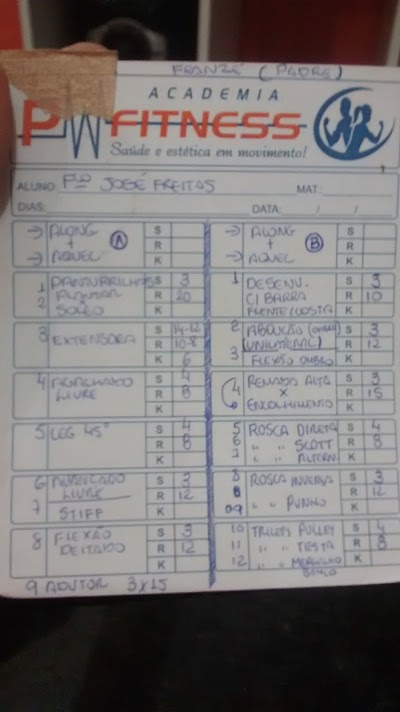 FRANZÉ (PADRE)
ACADEMIA
PW FITNESS
Saúde e estética em movimento!
ALUNO: Fco JOSÉ FREITAS MAT:
DIAS: DATA: / /
→ ALONG
+
→ AQUEC
A
S
R
K
1 PANTURRILHAS
2 PLANTAR
SOLEO
S 3
R 20
K
3 EXTENSORA
S 14-12
R 10-8
K 6
4 AGACHADO
LIVRE
S 4
R 8
K
5 LEG 45°
S 4
R 8
K
6
LIVRE
7 STIFF
S 3
R 12
K
8 FLEXÃO
DEITADO
S 3
R 12
K
9 ADUTOR 3X15
→ ALONG
+
→ AQUEC
B
S
R
K
1 DESENV.
C/ BARRA
FRENTE/COSTA
S 3
R 10
K
2 ABDUÇÃO (OMBRO)
UNILATERAL
3 FLEXÃO OMBRO
S 3
R 12
K
4 REMADA ALTA
X
ENCOLHIMENTO
S 3
R 15
K
5 ROSCA DIRETA
6 " " SCOTT
7 " " ALTERN.
S 4
R 8
K
8 ROSCA INVERSA
09 " " PUNHO
S 3
R 12
K
10 TRICEPS PULLEY
11 " " TESTA
12 " " MERGULHO
BANCO
S 4
R 8
K